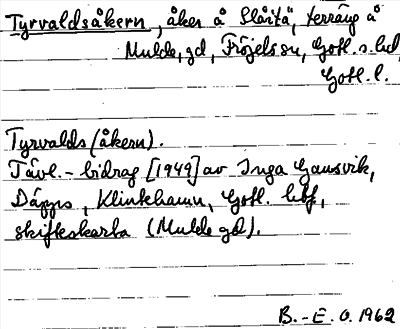 Tyrvaldsåkern, åker å Slåitä, terräng å
Mulde, gd, Fröjels sn, Gotl. s. hd,
Gotl. l.
Tyrvalds (åkern).
Tävl.-bidrag [1949] av Inga Gansvik,
Däpps, Klintehamn, Gotl. lbf,
skifteskarta (Mulde gd).
B.-E. O. 1962